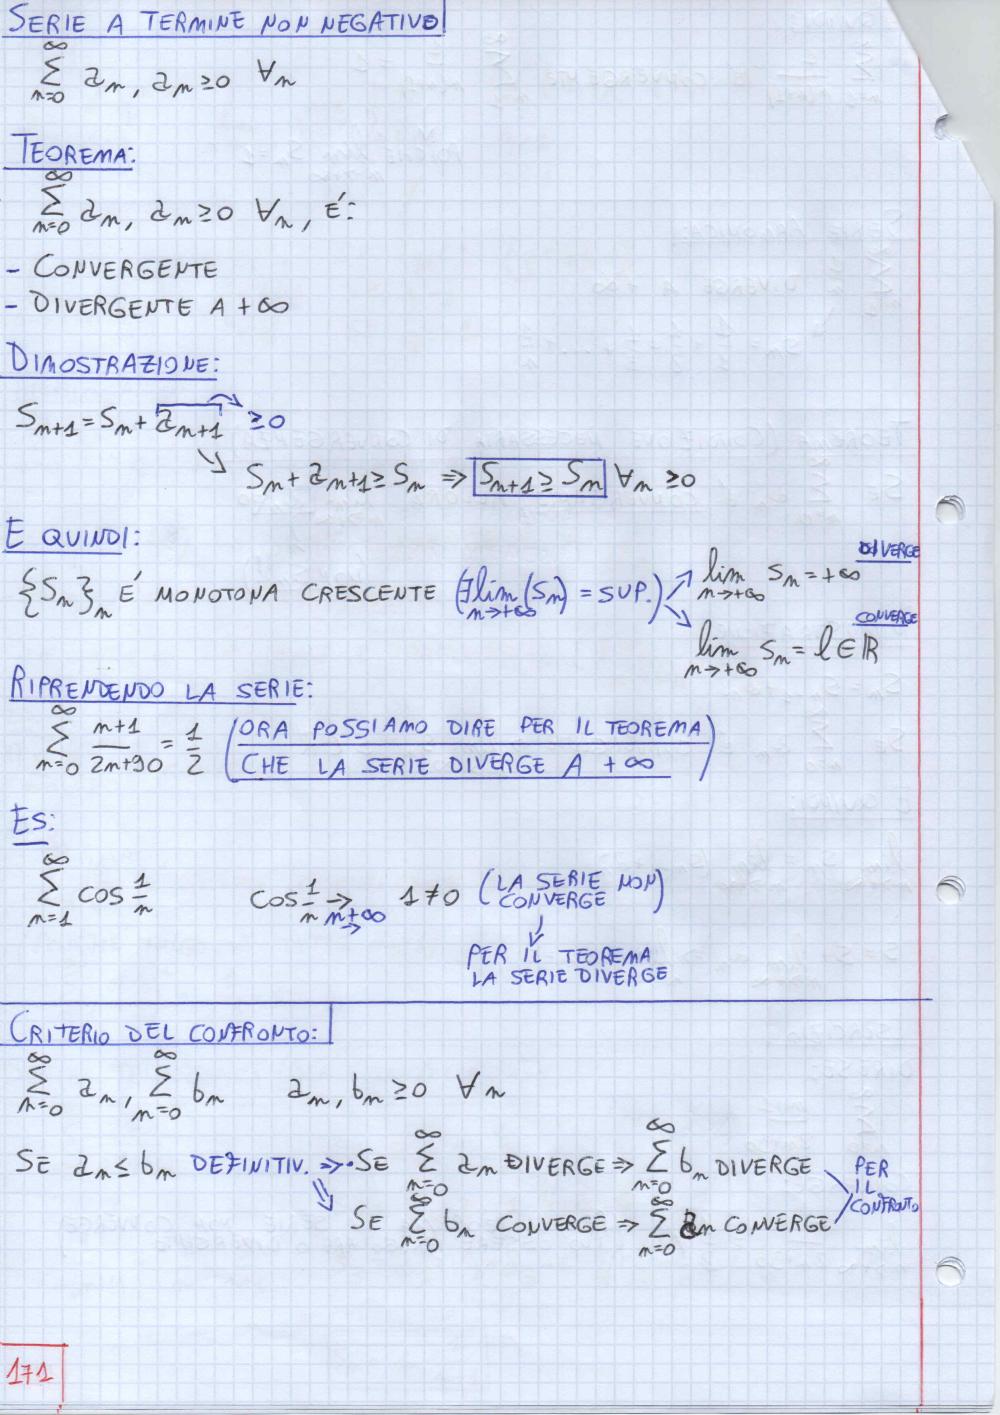 SERIE A TERMINE NON NEGATIVO
∞∑n=0 an, an ≥0 ∀n
TEOREMA:
∞∑n=0 an, an ≥0 ∀n, E':
- CONVERGENTE
- DIVERGENTE A +∞
DIMOSTRAZIONE:
Sn+1 = Sn + an+1 ≥0
Sn + an+1 ≥ Sn ⇒ Sn+1 ≥ Sn ∀n ≥0
E QUINDI:
{Sn}n E' MONOTONA CRESCENTE (∃ lim n→+∞ (Sn) = SUP.)
lim n→+∞ Sn = +∞ DIVERGE
lim n→+∞ Sn = l ∈ ℝ CONVERGE
RIPRENDENDO LA SERIE:
∞∑n=0 n+1/2n+90 = 1/2 (ORA POSSIAMO DIRE PER IL TEOREMA
CHE LA SERIE DIVERGE A +∞)
ES:
∞∑n=1 COS 1/n COS 1/n → n→+∞ 1≠0 (LA SERIE NON
CONVERGE)
PER IL TEOREMA
LA SERIE DIVERGE
CRITERIO DEL CONFRONTO:
∞∑n=0 an, ∞∑n=0 bn an, bn ≥0 ∀n
SE an ≤ bn DEFINITIV. ⇒ • SE ∞∑n=0 an DIVERGE ⇒ ∞∑n=0 bn DIVERGE
⇒ SE ∞∑n=0 bn CONVERGE ⇒ ∞∑n=0 an CONVERGE
PER
IL
CONFRONTO
171